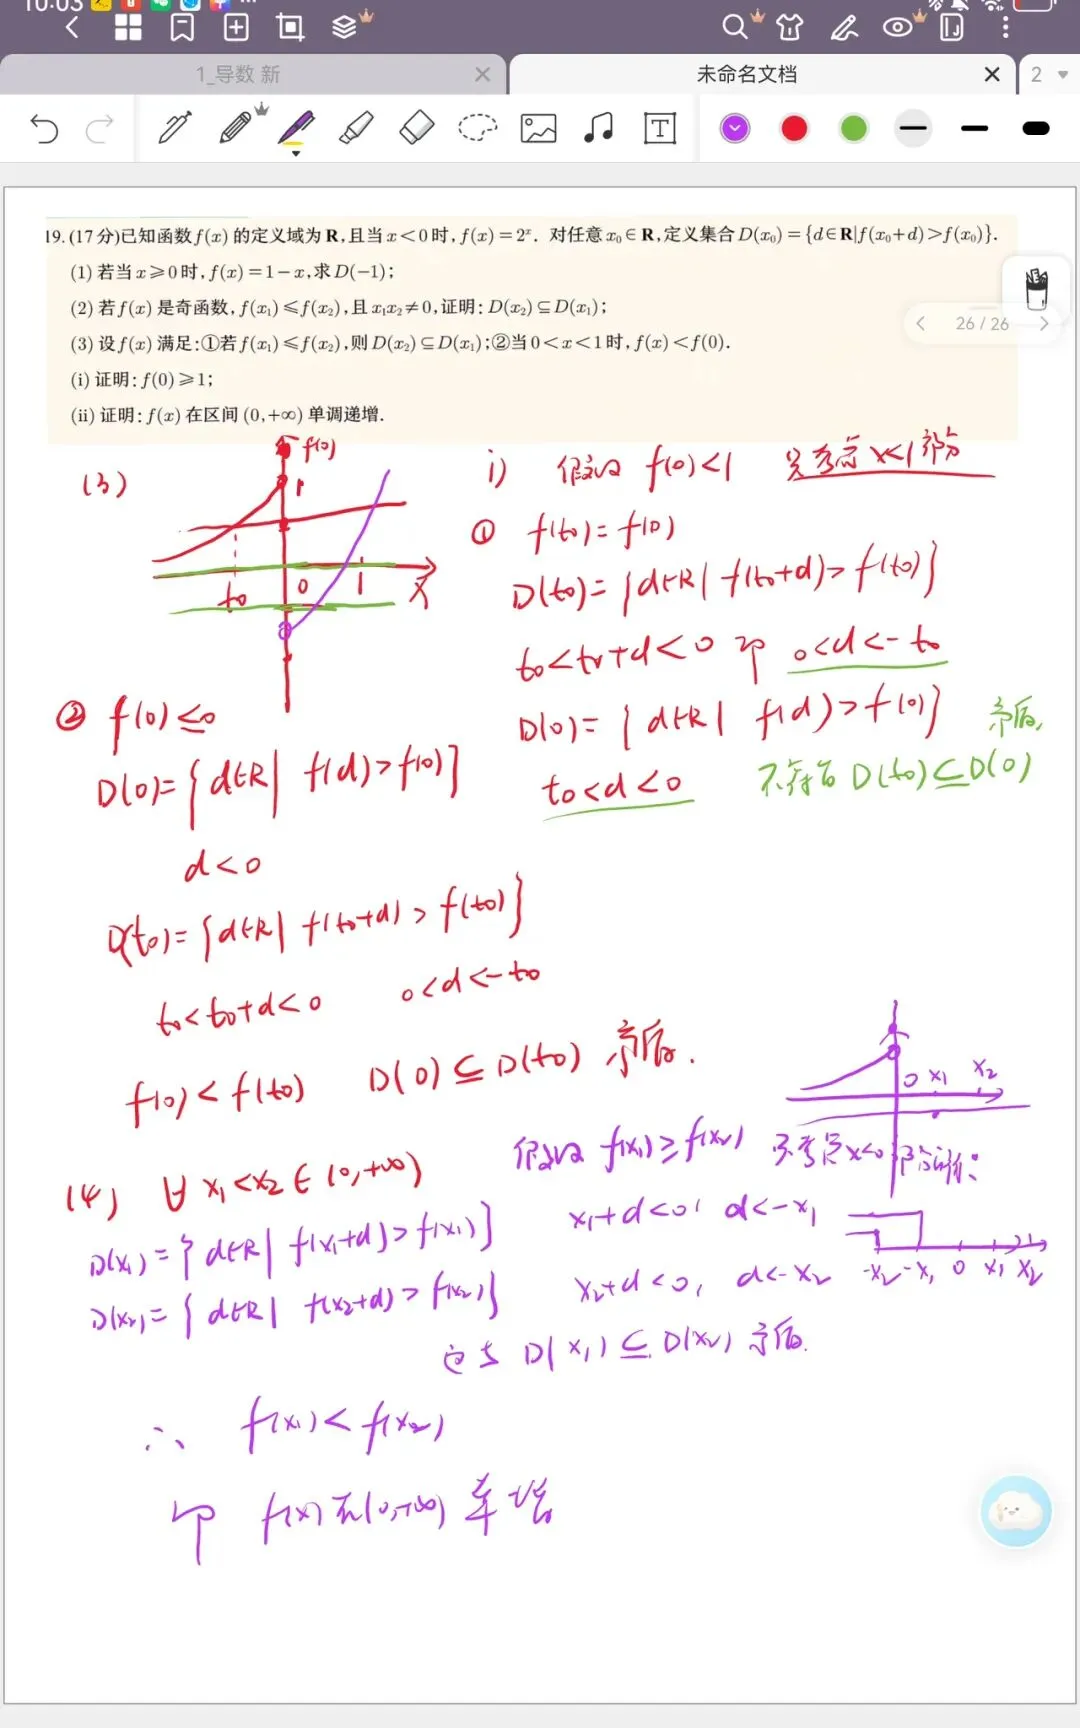 10:03
1_导数 新
未命名文档
2
19.(17分)已知函数f(x)的定义域为R,且当x<0时,f(x)=2ˣ. 对任意x₀∈R,定义集合D(x₀)={d∈R|f(x₀+d)>f(x₀)}.
(1)若当x⩾0时,f(x)=1-x,求D(-1);
(2)若f(x)是奇函数,f(x₁)⩽f(x₂),且x₁x₂≠0,证明:D(x₂)⊆D(x₁);
26 / 26
(3)设f(x)满足:①若f(x₁)⩽f(x₂),则D(x₂)⊆D(x₁);②当0<x<1时,f(x)<f(0).
(i)证明:f(0)⩾1;
(ii)证明:f(x)在区间(0,+∞)单调递增.
(3)
f(0)
1
t₀ 0 1 x
i) 假设 f(0)<1 只考虑 x<1 部分
① f(t₀)=f(0)
D(t₀)={d∈R| f(t₀+d)>f(t₀)}
t₀<t₀+d<0 即 0<d<-t₀
D(0)={d∈R| f(d)>f(0)} 矛盾,
t₀<d<0 不符合 D(t₀)⊆D(0)
② f(0)≤0
D(0)={d∈R| f(d)>f(0)}
d<0
D(t₀)={d∈R| f(t₀+d)>f(t₀)}
t₀<t₀+d<0 0<d<-t₀
f(0)<f(t₀) D(0)⊆D(t₀) 矛盾.
0 x₁ x₂
(4) ∀ x₁<x₂∈(0,+∞) 假设 f(x₁)≥f(x₂) 只考虑x<0部分
D(x₁)={d∈R| f(x₁+d)>f(x₁)} x₁+d<0, d<-x₁
D(x₂)={d∈R| f(x₂+d)>f(x₂)} x₂+d<0, d<-x₂
-x₂ -x₁ 0 x₁ x₂
这与 D(x₁)⊆D(x₂) 矛盾.
∴ f(x₁)<f(x₂)
即 f(x)在(0,+∞)单增